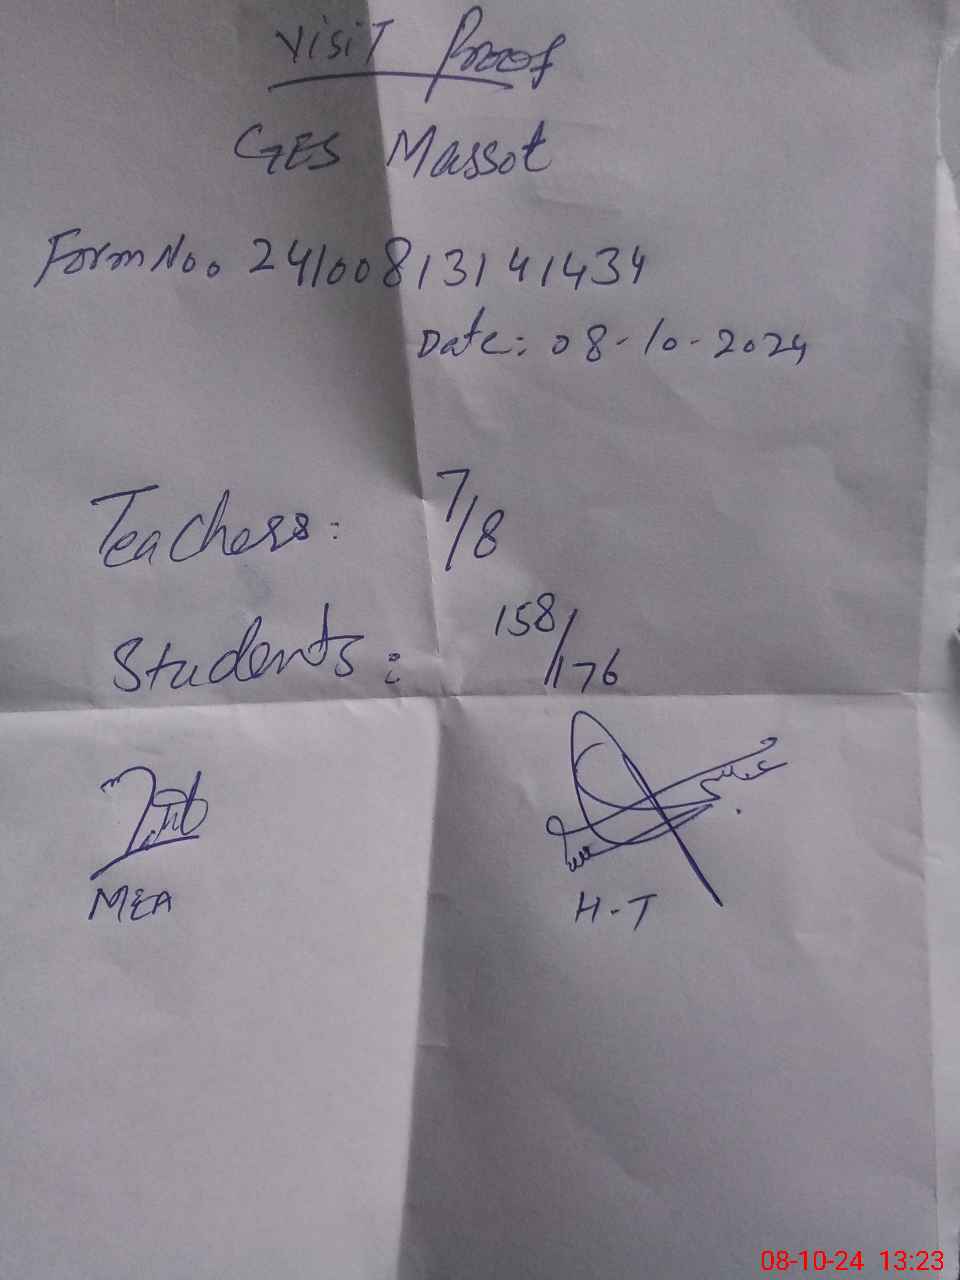 Visit Proof
GES Massot
Form No. 24100813141434
Date: 08-10-2024
Teachers: 7/8
Students: 158/176
MEA
H-T
08-10-24 13:23